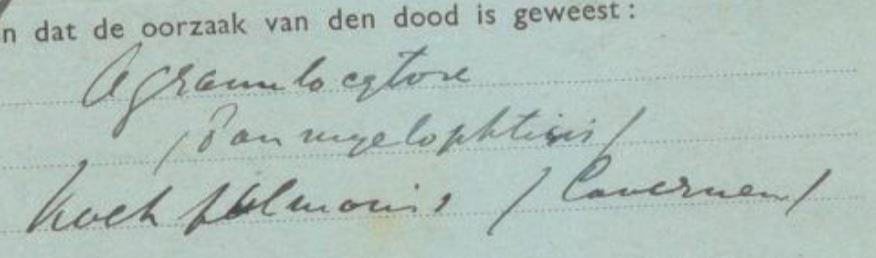 n dat de oorzaak van den dood is geweest:
Agranulocytose
/Panmyelophtisis/
Koch pulmonis /Cavernen/